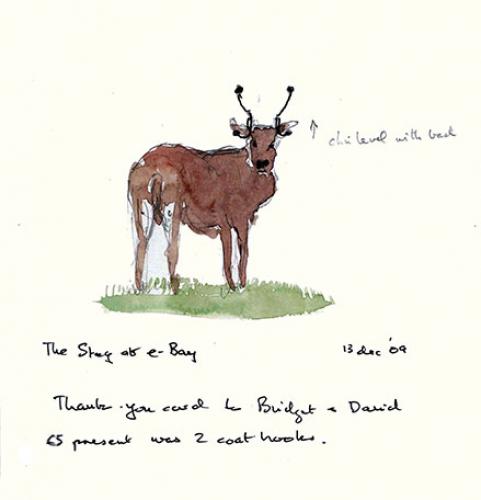 chin level with back
The Stag at e-Bay
13 dec '09
Thank-you card to Bridget & David
£5 present was 2 coat hooks.